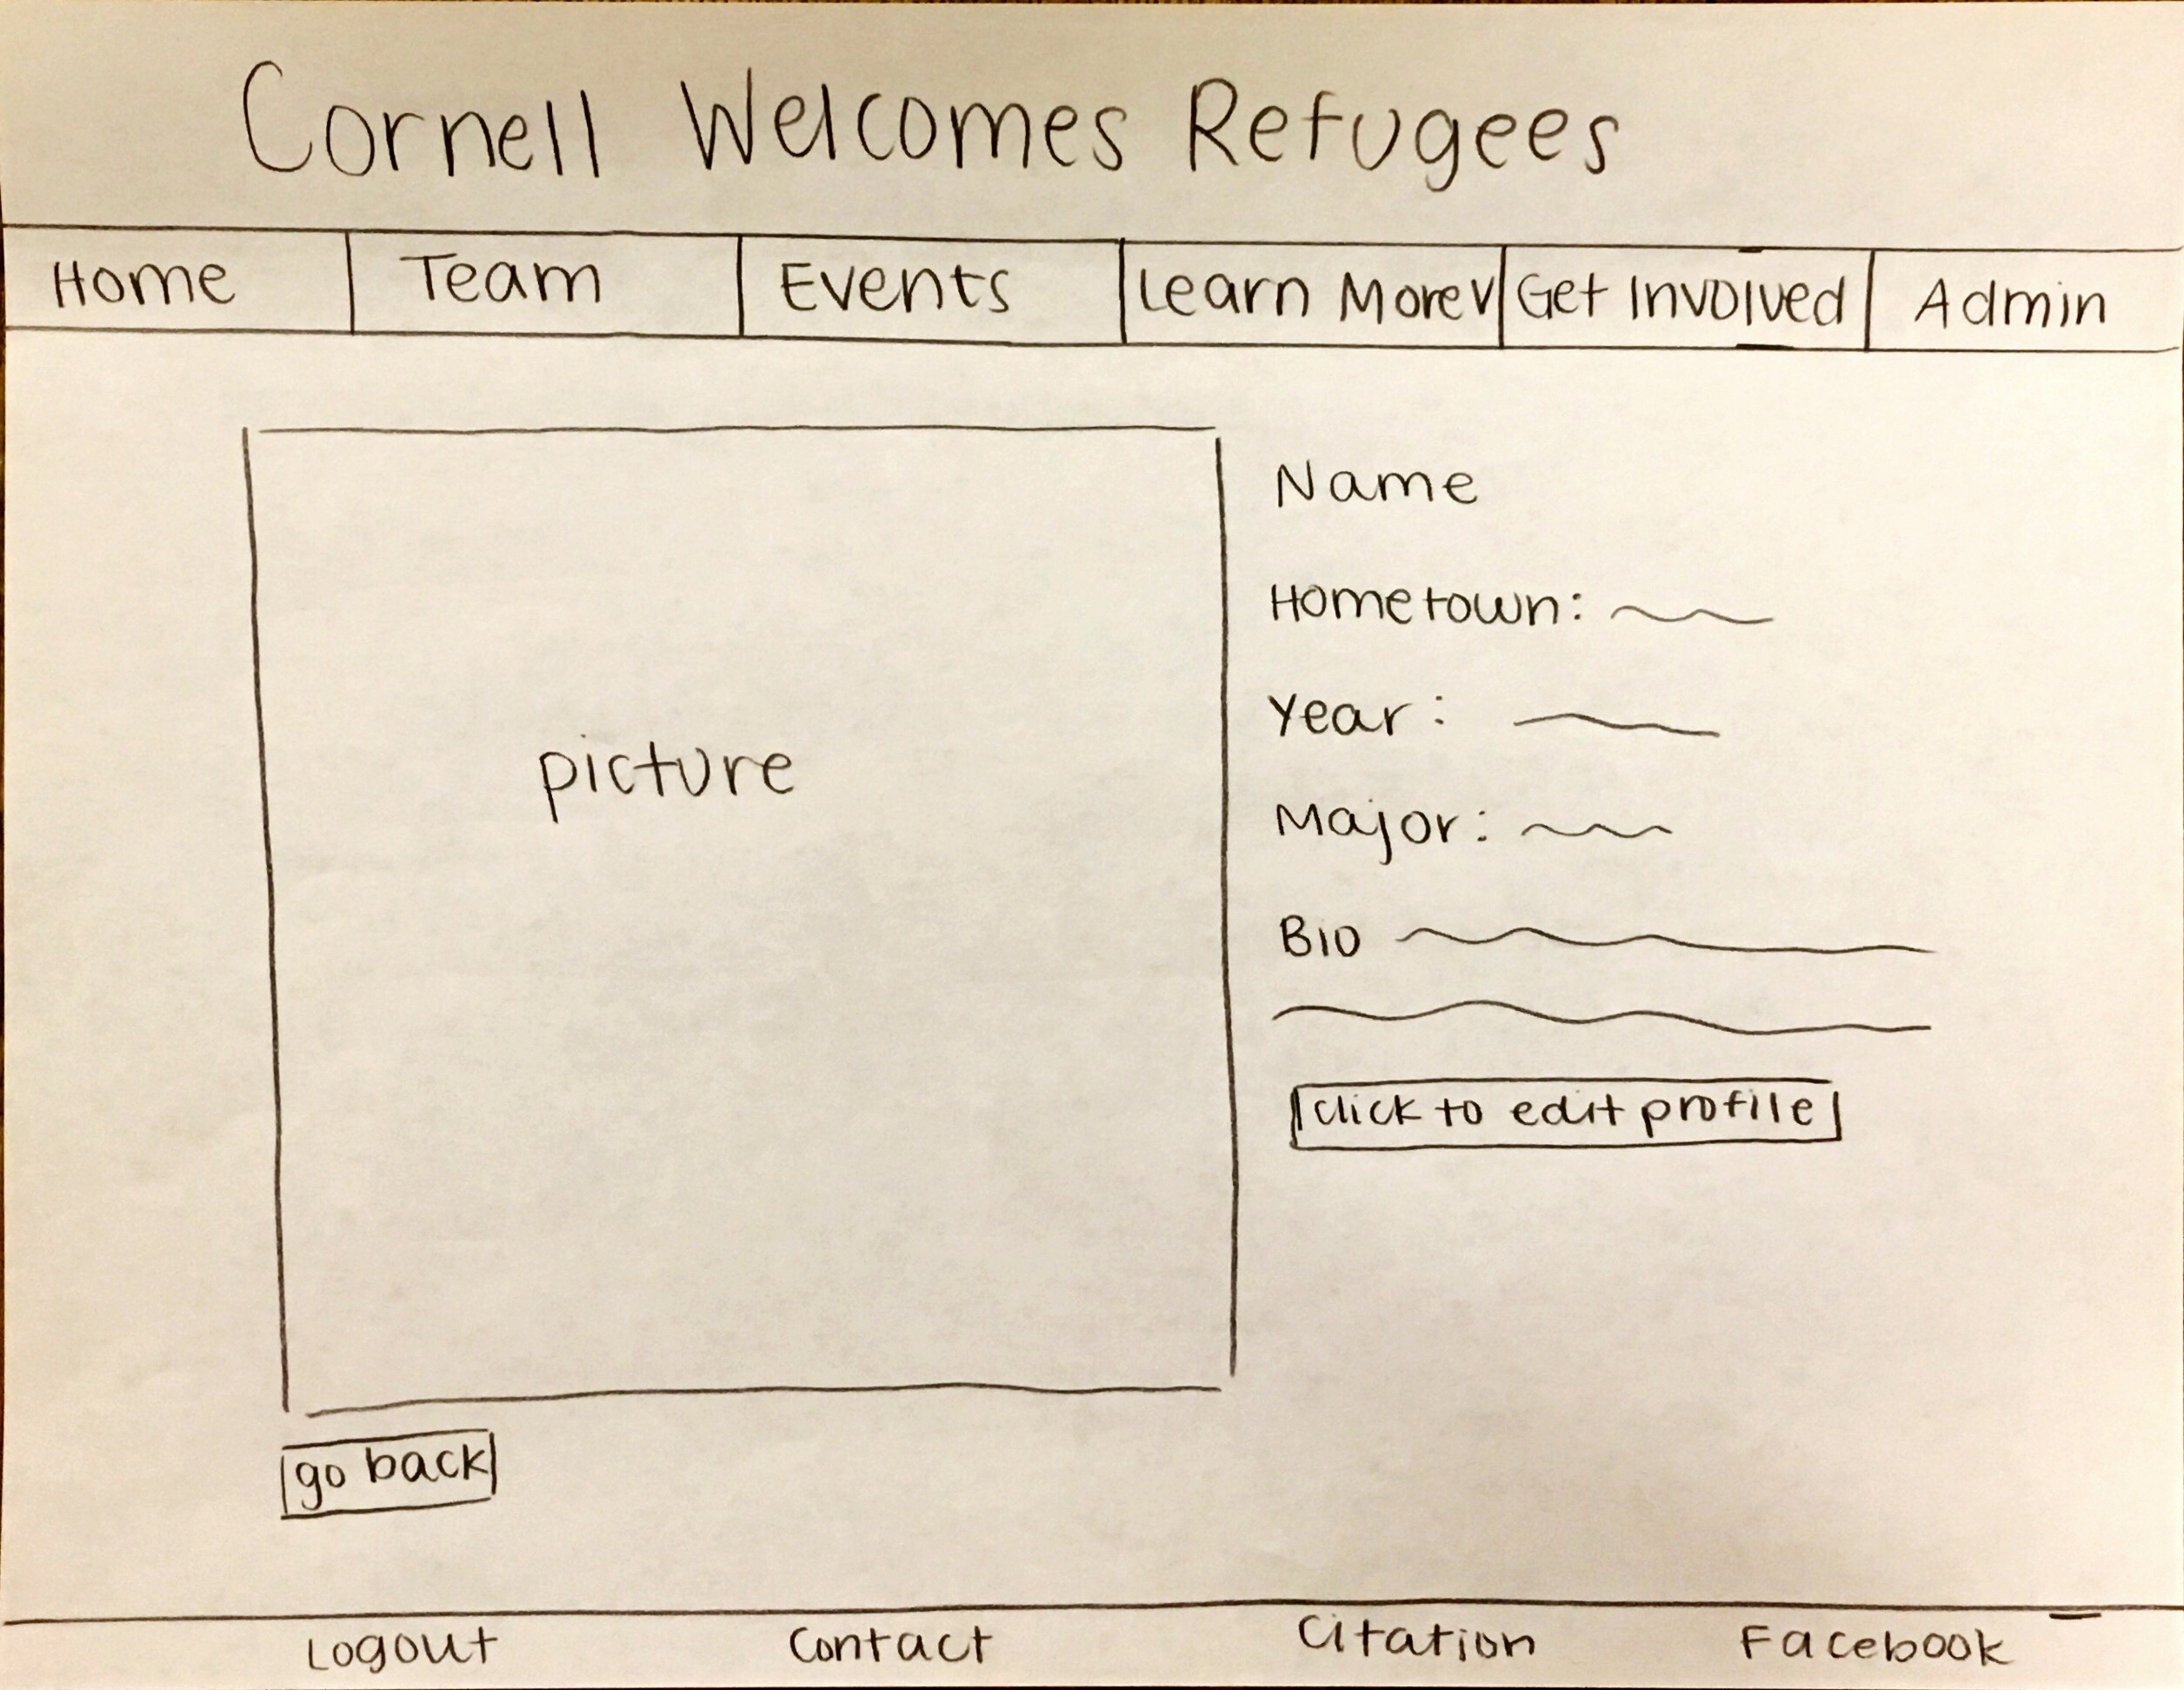 Cornell Welcomes Refugees
Home Team Events Learn More v Get Involved Admin
Name
Hometown:
Year:
picture
Major:
Bio
click to edit profile
go back
Logout Contact Citation Facebook